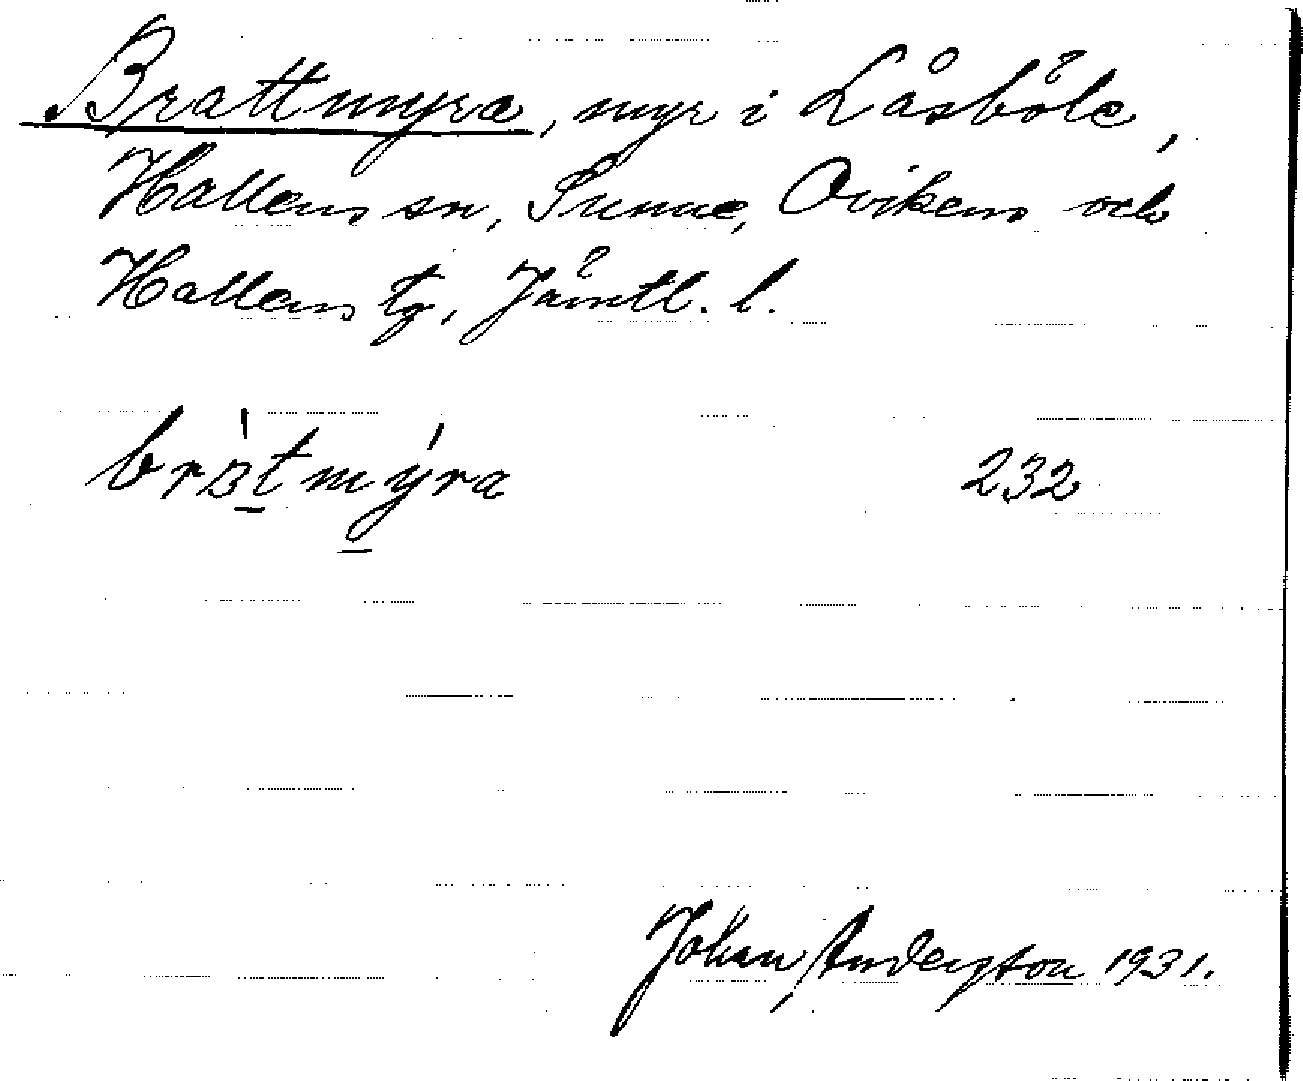 Brattmyra, myr i Låsböle,
Hallens sn, Sunne, Ovikens och
Hallens tg, Jämtl. l.
232
Johan Andersson 1931.